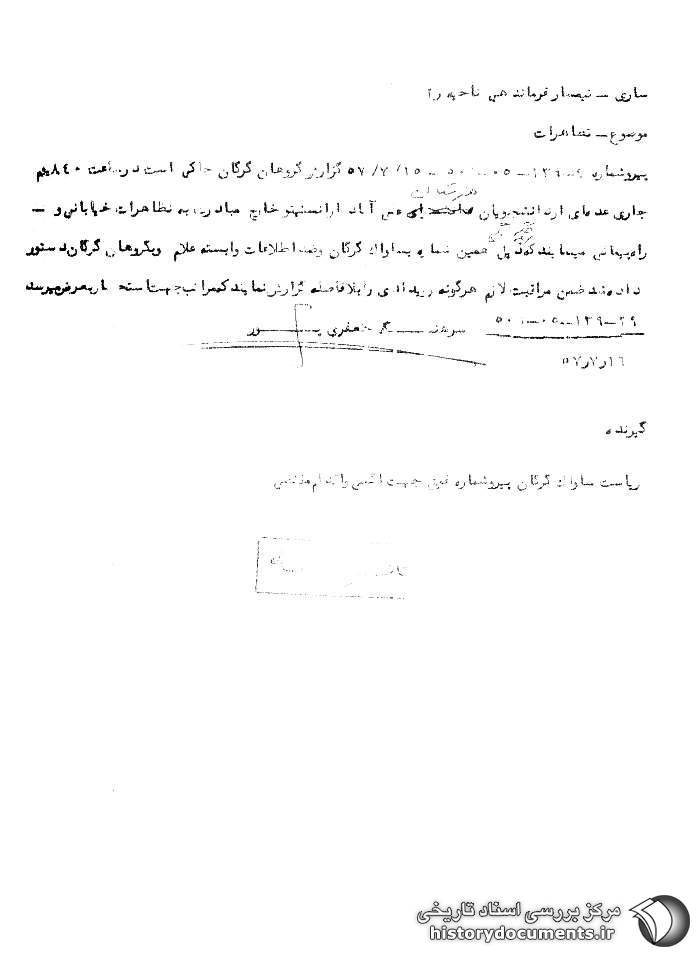 ساری – تیمسار فرماندهی ناحیه ژا
موضوع – تظاهرات
پیروشماره ۱۳۹ – ۰۵ – ۵۰۱ – ۵۷/۷/۱۵ گزارش گروهان گرگان حاکی است در ساعت ۸۴۰ یوم
جاری عده‌ای از دانشجویان عباس آباد از انستیتو خارج مبادرت به تظاهرات خیابانی و –
راه‌پیمائی مینمایند همین شماره بساواک گرگان و ضد اطلاعات وابسته اعلام و بگروهان گرگان دستور
داده شد ضمن مراقبت لازم هرگونه رویدادی را بلافاصله گزارش نمایند که مراتب جهت استحضار بعرض میرسد
۲۹–۱۳۹–۰۵–۵۰۱ سرهنگ جعفری پور
۱۶ر۷ر۵۷
گیرنده
ریاست ساواک گرگان پیروشماره فوق جهت آگهی و اقدام مقتضی
مرکز بررسی اسناد تاریخی
historydocuments.ir